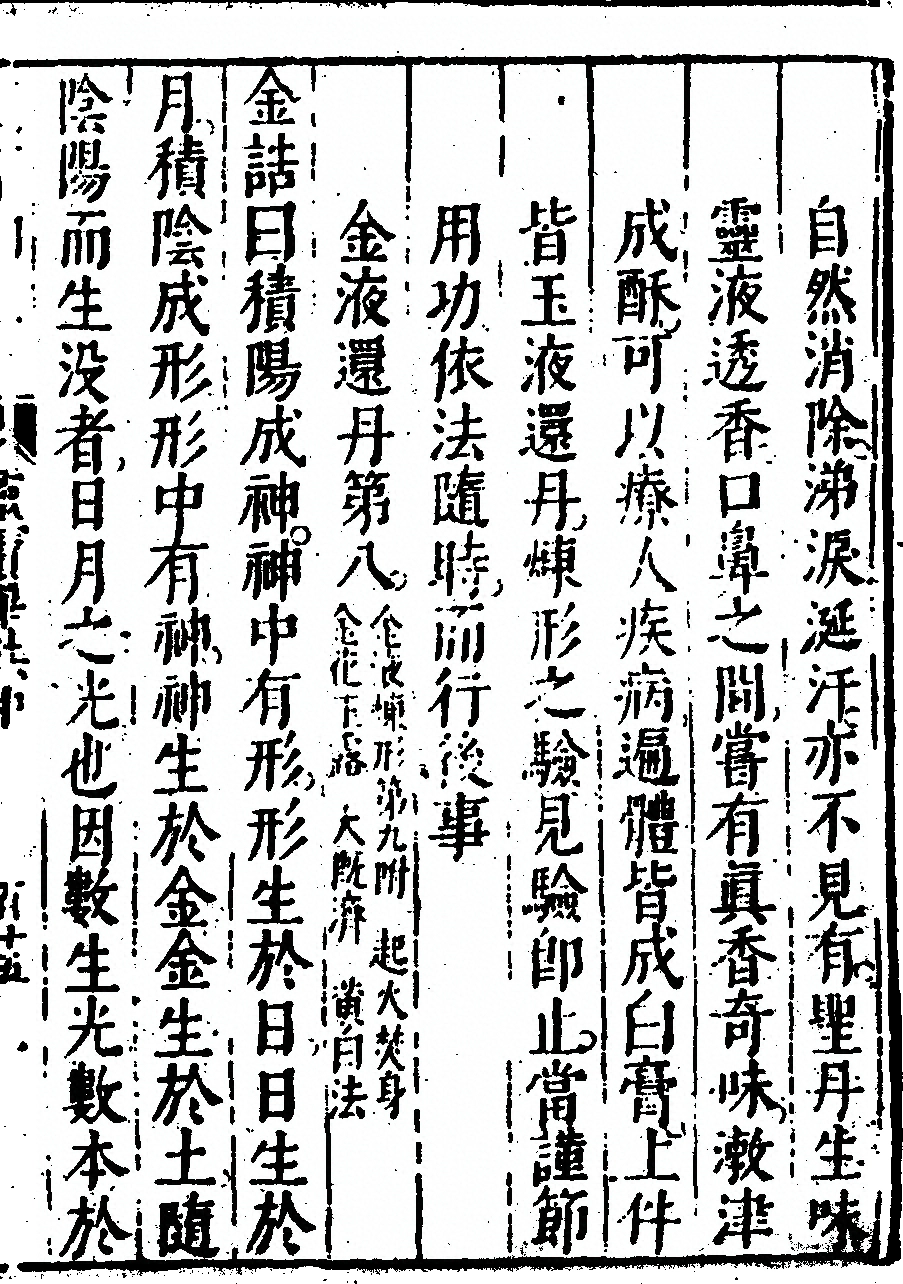 自然消除涕淚涎汗亦不見有聖丹生味
靈液透香口鼻之間嘗有眞香奇味漱津
成酥可以療人疾病遍體皆成白膏上件
皆玉液還丹煉形之驗見驗即止當謹節
用功依法隨時而行後事
金液還丹第八
金液煉形第九附 起火焚身
金花玉露 大既濟 黃白法
金誥曰積陽成神神中有形形生於日日生於
月積陰成形形中有神神生於金金生於土隨
陰陽而生没者日月之光也因數生光數本於